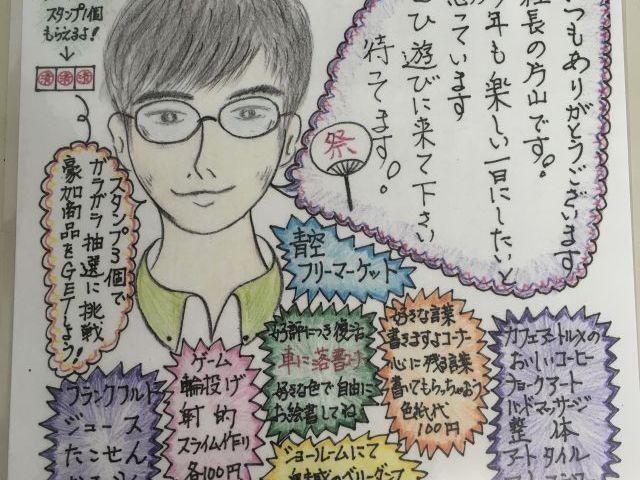 スタンプ1個
もらえるよ!
済 済 済
いつもありがとうございます
社長の片山です。
今年も楽しい一日にしたいと
思っています
ぜひ遊びに来て下さい
待ってます。
祭
スタンプ3個で
ガラガラ抽選に挑戦
豪加商品をGETしよう!
青空
フリーマーケット
好評につき復活
車に落書き
好きな色で自由に
お絵書してね
好きな言葉
書きますよコーナー
心に残る言葉
書いてもらっちゃおう
色紙代
100円
ゲーム
輪投げ
射的
スライム作り
各100円
フランクフルト
ジュース
たこせん
カフェヌートルメの
おいしいコーヒー
チョークアート
ハンドマッサージ
整体
アートタイル
ショールームにて
ベリーダンス